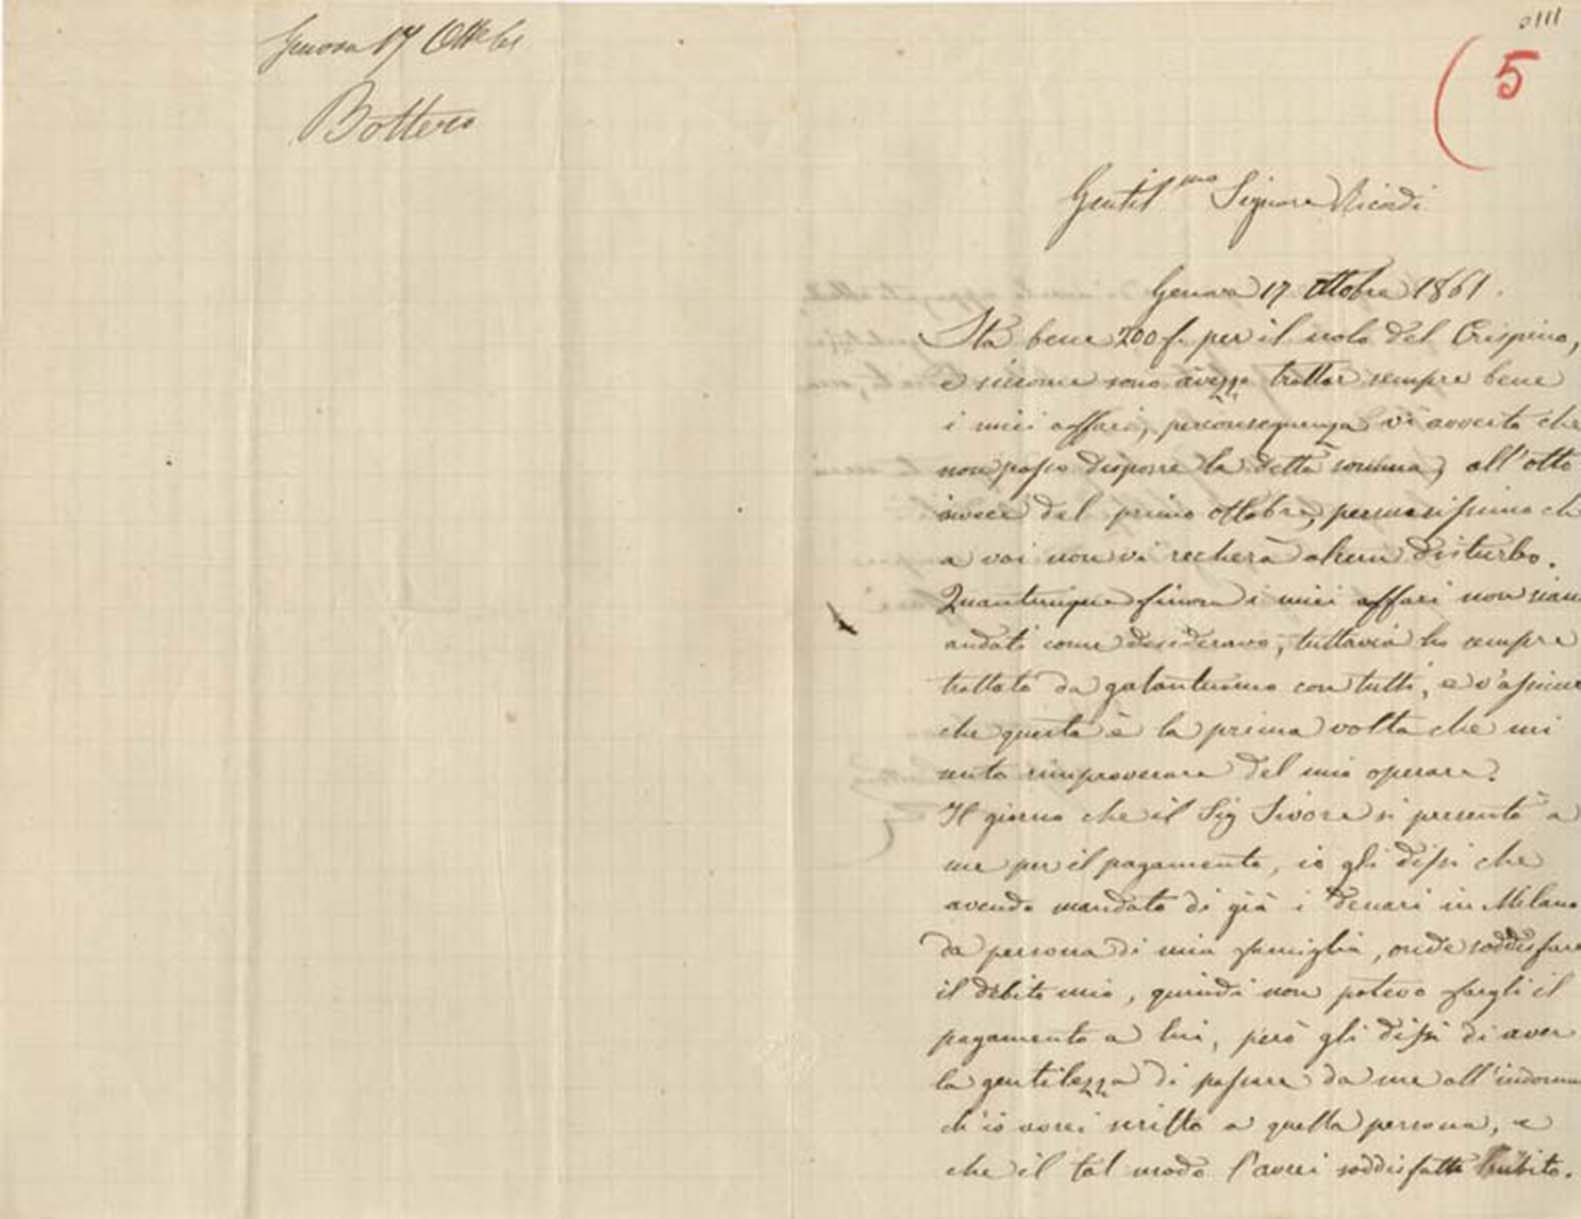 Genova 17 Ottobre
Bottero
5
Gentil.mo Signore Ricordi
Genova 17 Ottobre 1861.
Sta bene 200 f. per il nolo del Crispino,
e siccome sono avezzo trattar sempre bene
i miei affari, perconseguenza vi avverto che
non posso disporre la detta somma, all'otto
invece del primo Ottobre, persuasissimo ch
a voi non vi recherà alcun disturbo.
Quantunque finora i miei affari non sian
andati come desideravo, tuttavia ho sempre
trattato da galantuomo con tutti, e v'assicur
che questa è la prima volta che mi
sento rimproverare del mio operare.
Il giorno che il Sig Sivori si presentò a
me per il pagamento, io gli dissi che
avendo mandato di già i denari in Milano
da persona di mia famiglia, onde soddisfare
il debito mio, quindi non potevo fargli il
pagamento a lui, però gli dissi di aver
la gentilezza di passare da me all'indoman
ch'io avrei scritto a quella persona, e
che il tal modo l'avrei soddisfatto subito.